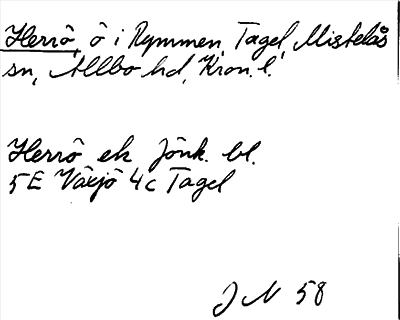 Herrö, ö i Rymmen, Tagel, Mistelås
sn, Allbo hd, Kron. l.
Herrö ek Jönk. bl.
5 E Växjö 4c Tagel
J N 58